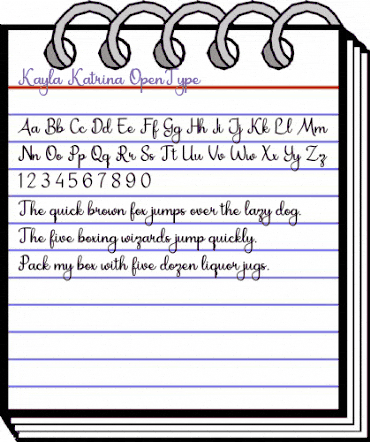 Kayla Katrina OpenType
Aa Bb Cc Dd Ee Ff Gg Hh Ii Jj Kk Ll Mm
Nn Oo Pp Qq Rr Ss Tt Uu Vv Ww Xx Yy Zz
1 2 3 4 5 6 7 8 9 0
The quick brown fox jumps over the lazy dog.
The five boxing wizards jump quickly.
Pack my box with five dozen liquor jugs.